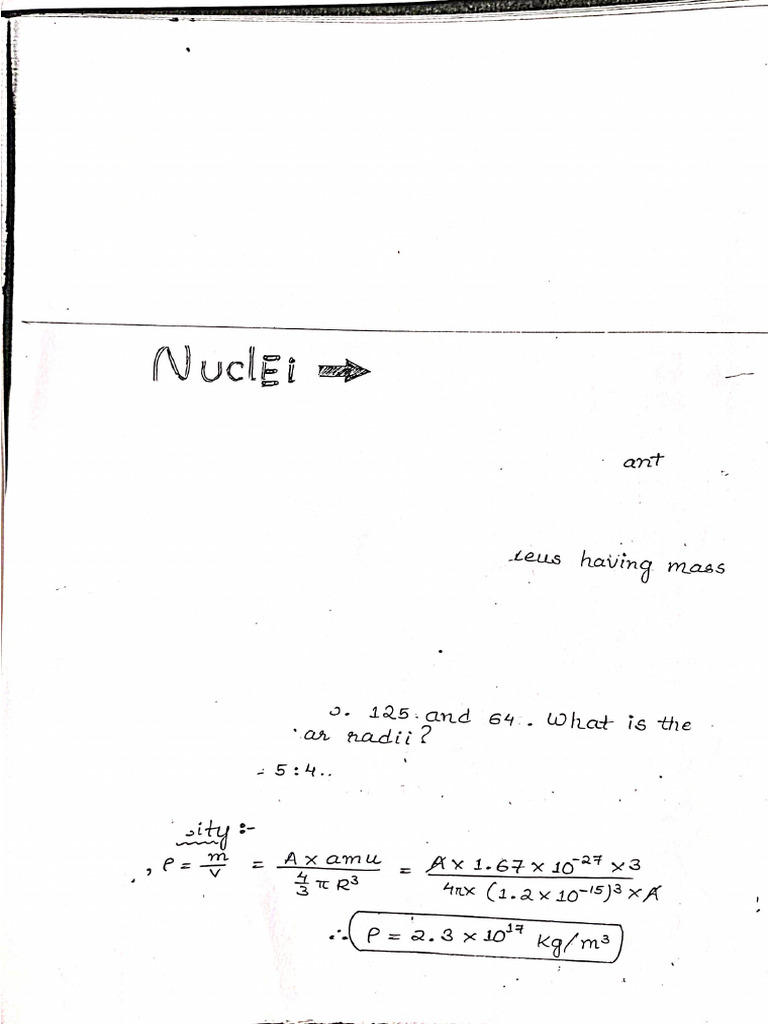 NuclEi →
ant
having mass
125 and 64. What is the
radii?
= 5:4..
:-
, ρ = m/v = A x amu / 4/3 π R³ = A x 1.67 x 10⁻²⁷ x 3 / 4π x (1.2 x 10⁻¹⁵)³ x A
∴ ρ = 2.3 x 10¹⁷ Kg/m³